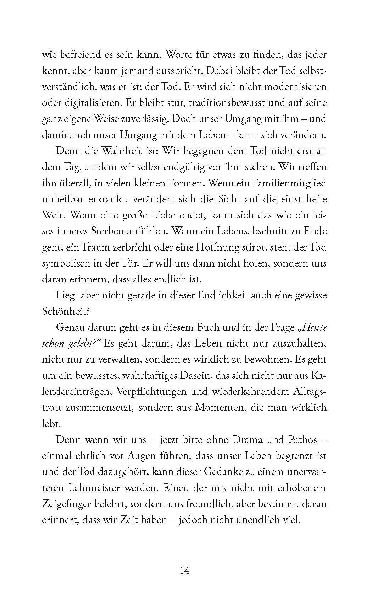 wie befreiend es sein kann, Worte für etwas zu finden, das jeder
kennt, aber kaum jemand ausspricht. Dabei bleibt der Tod selbst-
verständlich, was er ist: der Tod. Er wird sich nicht modernisieren
oder digitalisieren. Er bleibt stur, traditionsbewusst und auf seine
ganz eigene Weise zuverlässig. Doch unser Umgang mit ihm – und
damit auch unser Umgang mit dem Leben – kann sich verändern.
Denn die Wahrheit ist: Wir begegnen dem Tod nicht erst an
dem Tag, an dem wir selbst endgültig vor ihm stehen. Wir treffen
ihn überall, in vielen kleinen Formen. Wenn ein Familienmitglied
unheilbar erkrankt, verändert sich die Sicht auf die einst heile
Welt. Wenn eine große Liebe endet, kann sich das wie ein
inneres Sterben anfühlen. Wenn ein Lebensabschnitt zu Ende
geht, ein Traum zerbricht oder eine Hoffnung stirbt, steht der Tod
symbolisch in der Tür. Er will uns dann nicht holen, sondern uns
daran erinnern, dass alles endlich ist.
Liegt aber nicht gerade in dieser Endlichkeit auch eine gewisse
Schönheit?
Genau darum geht es in diesem Buch und in der Frage „Heute
schon gelebt?“ Es geht darum, das Leben nicht nur auszuhalten,
nicht nur zu verwalten, sondern es wirklich zu bewohnen. Es geht
um ein bewusstes, wahrhaftiges Dasein, das sich nicht nur aus Ka-
lendereinträgen, Verpflichtungen und wiederkehrendem Alltags-
trott zusammensetzt, sondern aus Momenten, die man wirklich
lebt.
Denn wenn wir uns – jetzt bitte ohne Drama und Pathos –
einmal ehrlich vor Augen führen, dass unser Leben begrenzt ist
und der Tod dazugehört, kann dieser Gedanke zu einem unerwar-
teten Lehrmeister werden. Einer, der uns nicht mit erhobenem
Zeigefinger belehrt, sondern uns freundlich, aber bestimmt daran
erinnert, dass wir Zeit haben – jedoch nicht unendlich viel.
14